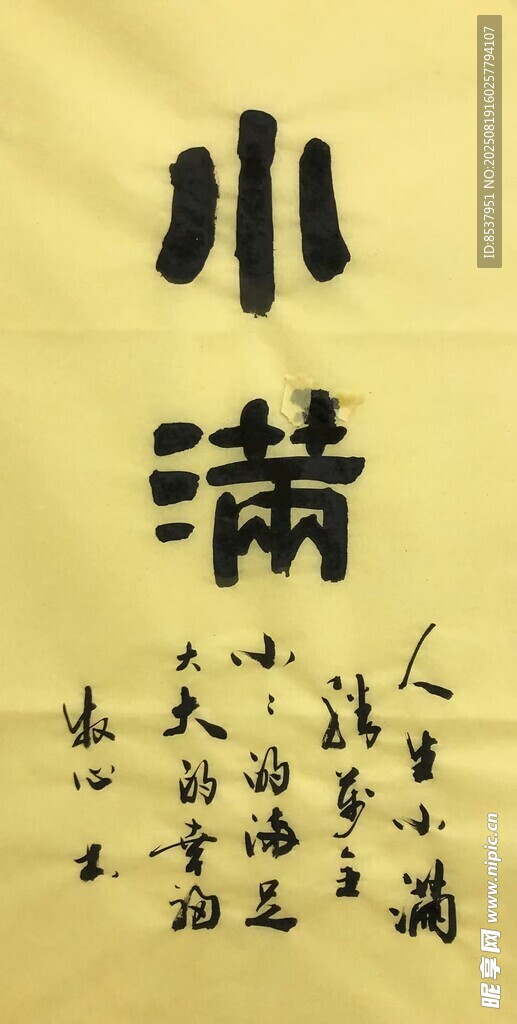 小
满
人生小满
勝萬全
小〻的满足
大大的幸福
牧心书
ID:8537951 NO:20250819160257794107
昵享网 www.nipic.cn